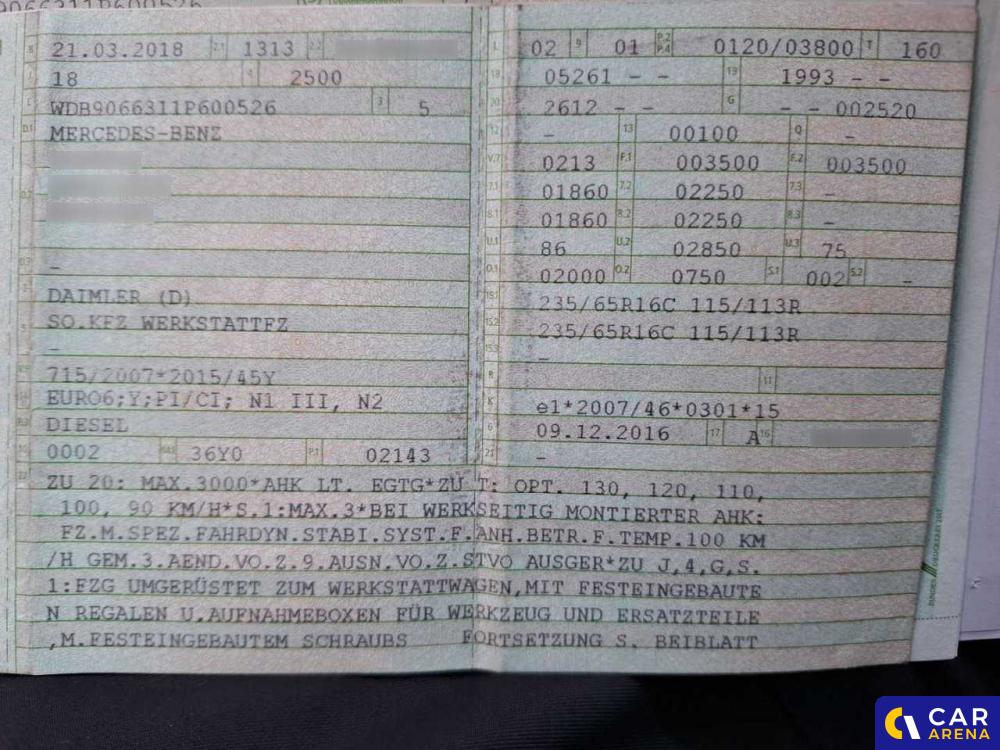 9066311P600526
B 21.03.2018 2.1 1313 2.2 L 02 9 01 P.2 P.4 0120/03800 T 160
J 18 4 2500 18 05261 - - 19 1993 - -
E WDB9066311P600526 3 5 20 2612 - - G - - 002520
D.1 MERCEDES-BENZ 12 - 13 00100 Q -
V.7 0213 F.1 003500 F.2 003500
D.2 7.1 01860 7.2 02250 7.3 -
8.1 01860 8.2 02250 8.3 -
U.1 86 U.2 02850 U.3 75
D.3 - O.1 02000 O.2 0750 S.1 002 S.2 -
2 DAIMLER (D) 15.1 235/65R16C 115/113R
5 SO.KFZ WERKSTATTFZ 15.2 235/65R16C 115/113R
- 15.3 -
715/2007*2015/45Y R 11
EURO6;Y;PI/CI; N1 III, N2 K e1*2007/46*0301*15
P.3 DIESEL 6 09.12.2016 17 A 16
10 0002 14.1 36Y0 P.1 02143 21 -
22 ZU 20: MAX.3000*AHK LT. EGTG*ZU T: OPT. 130, 120, 110,
100, 90 KM/H*S.1:MAX.3*BEI WERKSEITIG MONTIERTER AHK:
FZ.M.SPEZ.FAHRDYN.STABI.SYST.F.ANH.BETR.F.TEMP.100 KM
/H GEM.3.AEND.VO.Z.9.AUSN.VO.Z.STVO AUSGER*ZU J,4,G,S.
1:FZG UMGERÜSTET ZUM WERKSTATTWAGEN,MIT FESTEINGEBAUTE
N REGALEN U.AUFNAHMEBOXEN FÜR WERKZEUG UND ERSATZTEILE
,M.FESTEINGEBAUTEM SCHRAUBS FORTSETZUNG S. BEIBLATT
CAR
ARENA